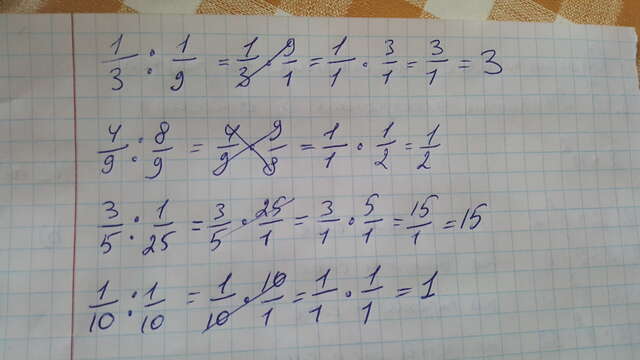 1/3 : 1/9 = 1/3 · 9/1 = 1/1 · 3/1 = 3/1 = 3
4/9 : 8/9 = 4/9 · 9/8 = 1/1 · 1/2 = 1/2
3/5 : 1/25 = 3/5 · 25/1 = 3/1 · 5/1 = 15/1 = 15
1/10 : 1/10 = 1/10 · 10/1 = 1/1 · 1/1 = 1